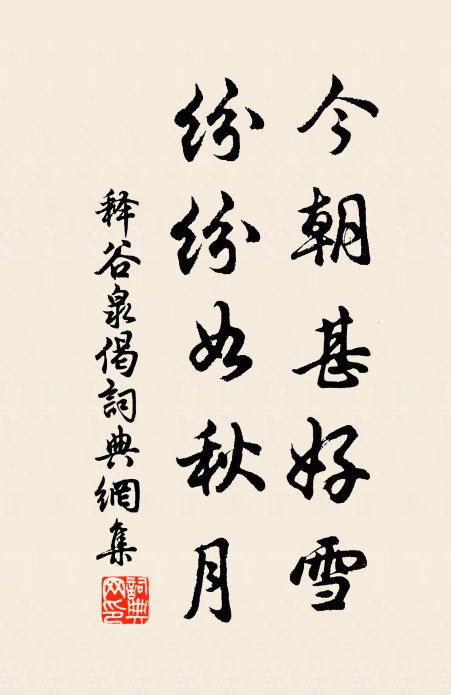 今朝甚好雪
纷纷如秋月
释谷泉偈詞典網集
詞典网印